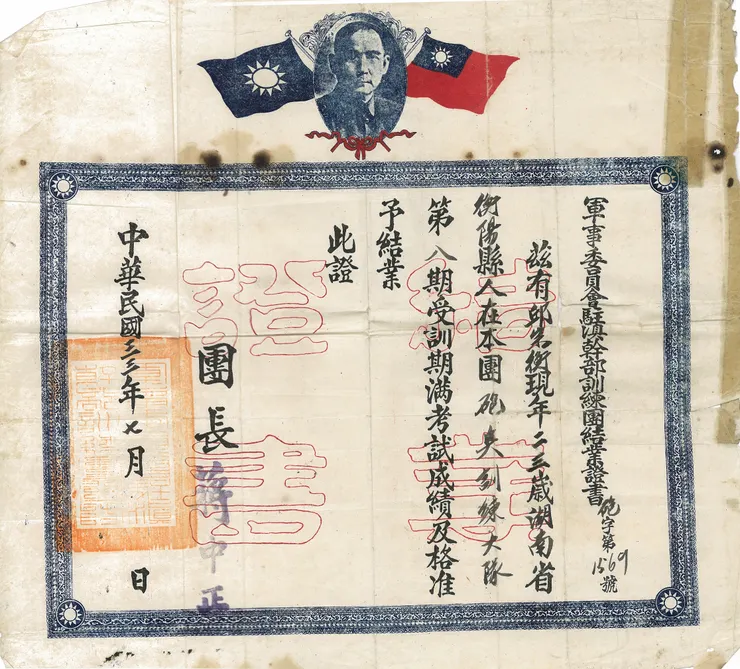 軍事委員會駐滇幹部訓練團結業證書
砲字第1569號
茲有邱名衡現年二三歲湖南省
衡陽縣人在本團砲兵訓練大隊
第八期受訓期滿考試成績及格准
予結業
此證
結業證書
團長蔣中正
中華民國三三年七月 日